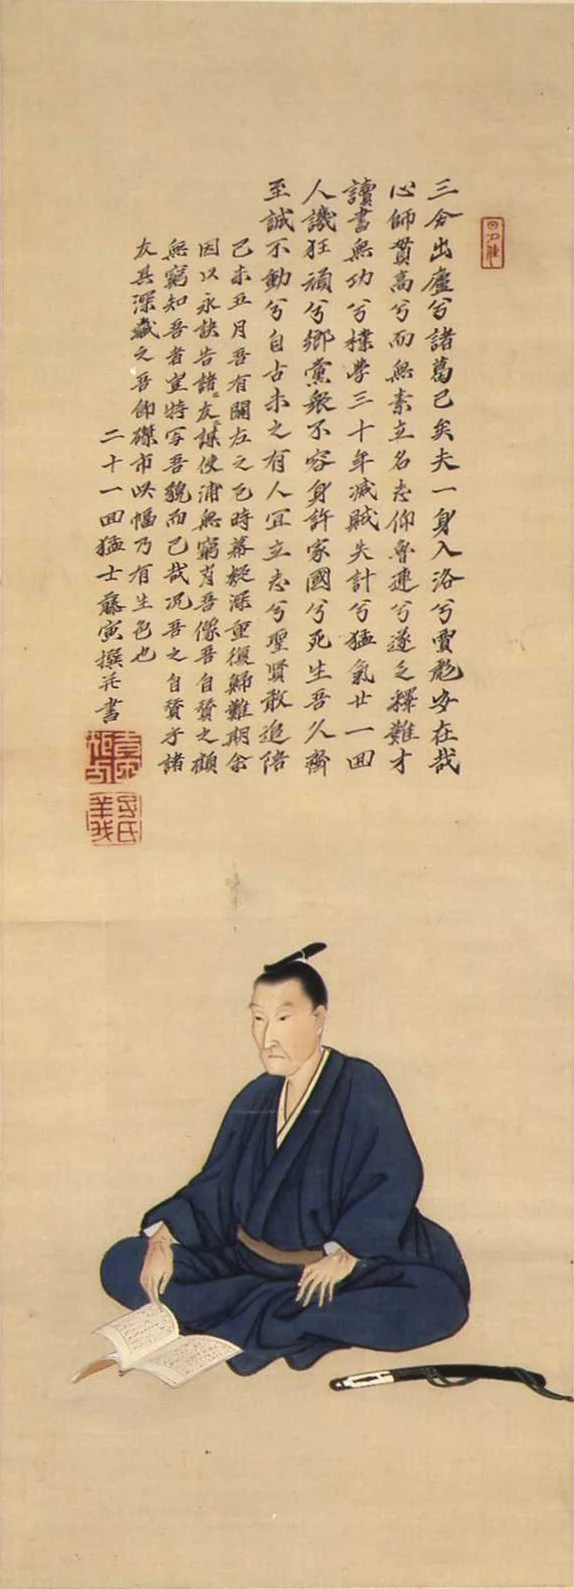 三分出廬兮諸葛已矣夫一身入洛兮賈彪安在哉
心師貫高兮而無素立名志仰魯連兮遂乏釋難才
讀書無功兮樸學三十年滅賊失計兮猛氣廿一回
人譏狂頑兮郷黨衆不容身許家國兮死生吾久齊
至誠不動兮自古未之有人宜立志兮聖賢敢追陪
己未五月吾有關左之厄時幕疑深重復歸難期余
因以永訣告諸〻友〻謀使浦無窮肖吾像吾自贊之顧
無窮知吾者豈特写吾貌而已哉况吾之自贊乎諸
友其深藏之吾即磔市此幅乃有生色也
二十一回猛士藤寅撰并書